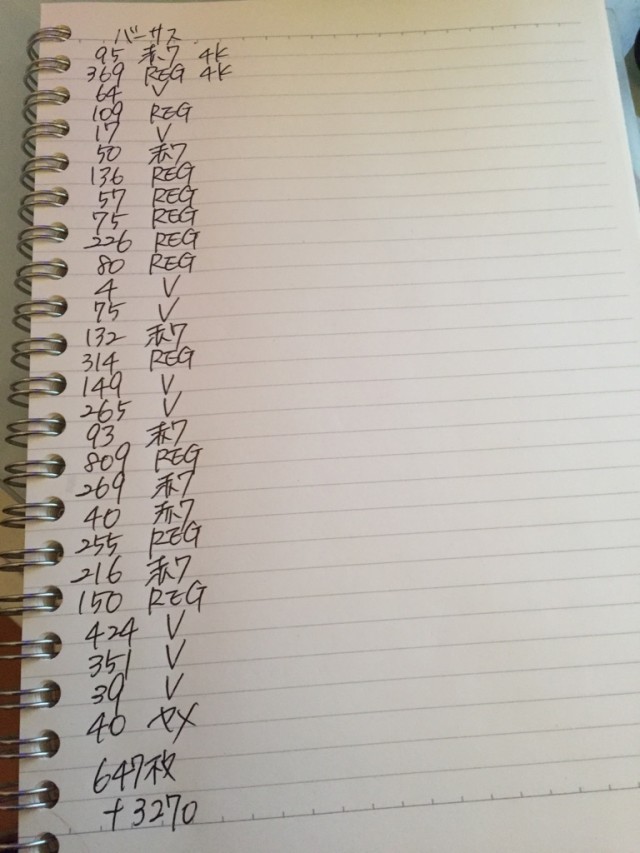 バーサス
95 赤7 4K
369 REG 4K
64 V
109 REG
17 V
50 赤7
136 REG
57 REG
75 REG
226 REG
80 REG
4 V
75 V
132 赤7
314 REG
149 V
265 V
93 赤7
809 REG
269 赤7
40 赤7
255 REG
216 赤7
150 REG
424 V
351 V
39 V
40 ヤメ
647枚
+3270